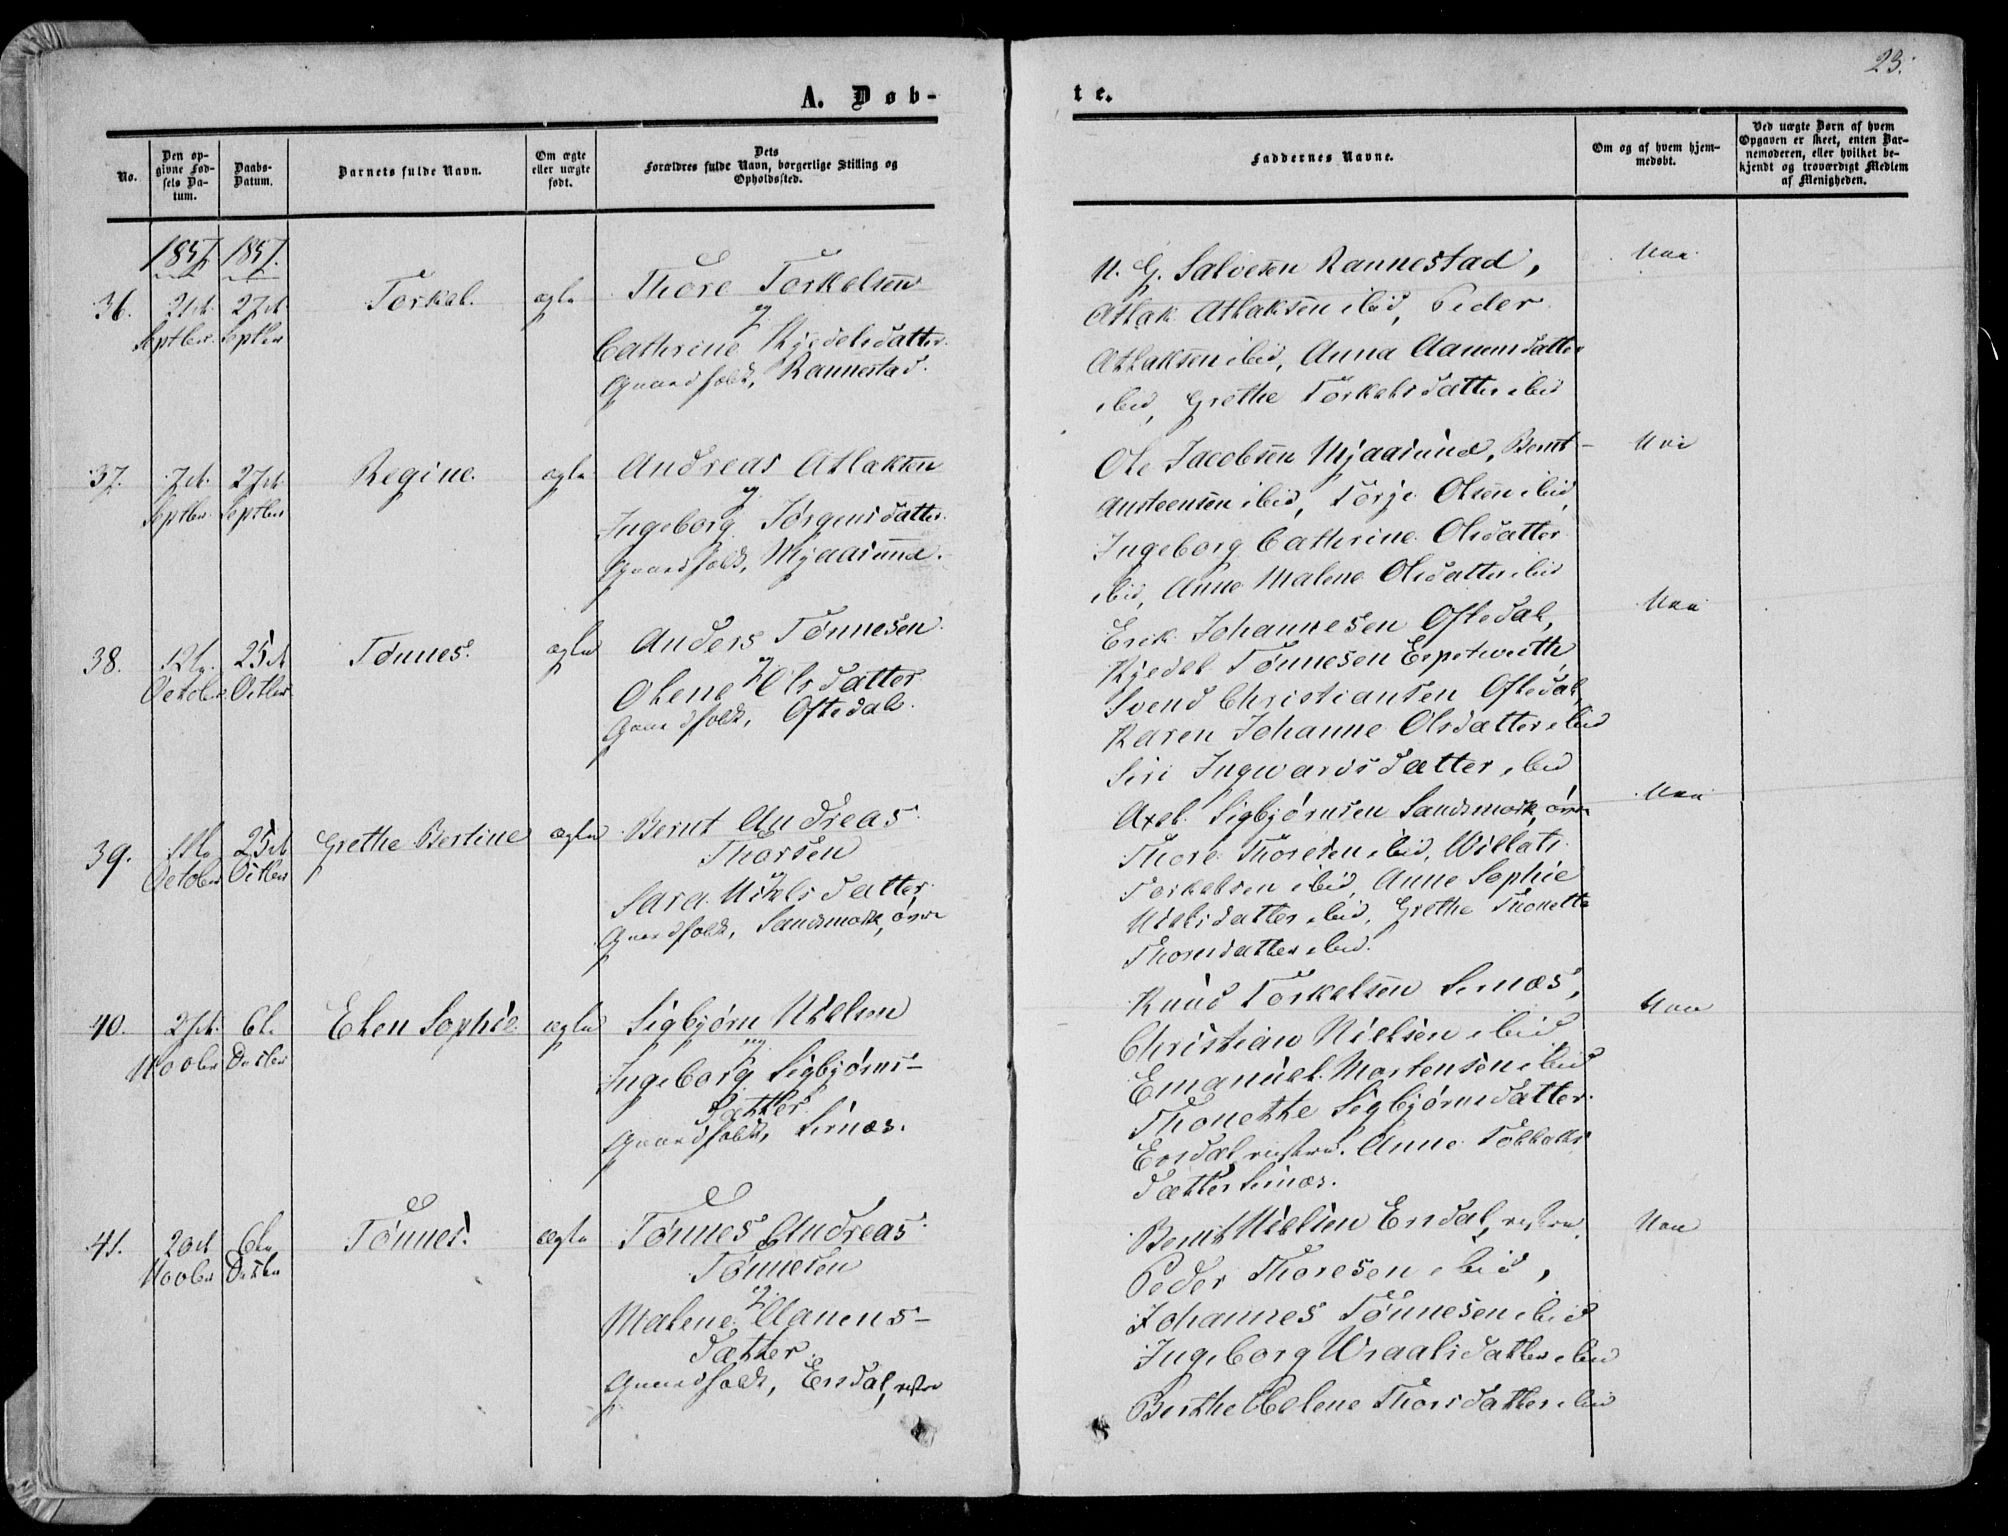 23.
A. Døb-
te.
No.
Den opgivne Fødsels Datum.
Daabs-Datum.
Barnets fulde Navn.
Om ægte eller uægte født.
Dets Forældres fulde Navn, borgerlige Stilling og Opholdssted.
Faddernes Navne.
Om og af hvem hjemmedøbt.
Ved uægte Børn af hvem Opgaven er skeet, enten Barnemoderen, eller hvilket bekjendt og troværdigt Medlem af Menigheden.
1857. 1857.
36.
Septber Septber
Torkel.
ægte
Thore Torkelsen
og
Cathrine Kjedelsdatter
Gaardfolk, Rannestad.
N. G. Salvesen Rannestad,
Atlak Atlaksen ibid, Peder
Atlaksen ibid, Anna Aanensdatter
ibid, Grethe Torkelsdatter ibid
37.
7de 27de
Septber Septber
Regine.
ægte
Andreas Atlaksen
og
Ingeborg Jørgensdatter
Gaardfolk, Mjaasund.
Ole Jacobsen Mjaasund, Bernt
Austeensen ibid, Torje Olsen ibid,
Ingeborg Cathrine Olsdatter
ibid, Anne Malene Olsdatter ibid
38.
October Octber
Tønnes.
ægte
Anders Tønnesen
og
Olene Olsdatter
Gaardfolk, Oftedal.
Erik Johannesen Oftedal,
Kjedel Tønnesen
Svend Christiansen Oftedal,
Karen Johanne Olsdatter ibid
Siri Ingwardsdatter ibid
39.
October Octber
Grethe Bertine
ægte
Bernt Andreas
Thorsen
og
Sara Nielsdatter
Gaardfolk, Sandsmork, øvre
Axel Sigbjørnsen Sandsmork, øvre
Thore Thoresen ibid,
Torkelsen ibid, Anne Sophie
Nielsdatter ibid, Grethe Thonette
Thorsdatter ibid.
40.
Novber Decber
Elen Sophie
ægte
Sigbjørn Nielsen
og
Ingeborg Sigbjørns-
datter
Gaardfolk, Sirnæs.
Knud Torkelsen Sirnæs,
Christian Nielsen ibid
Emanuel Mortensen ibid
Thonette Sigbjørnsdatter
Ersdal, vestre. Anne Torkels
datter Sirnæs.
41.
20de
Novber Decber
Tønnes.
ægte
Tønnes Andreas
Tønnesen
og
Malene Aanens-
datter
Gaardfolk, Ersdal, vestre
Bernt Nielsen Ersdal, vestre,
Peder Thoresen ibid,
Johannes Tønnesen ibid
Ingeborg Wraalsdatter ibid
Berthe Helene Thorsdatter ibid